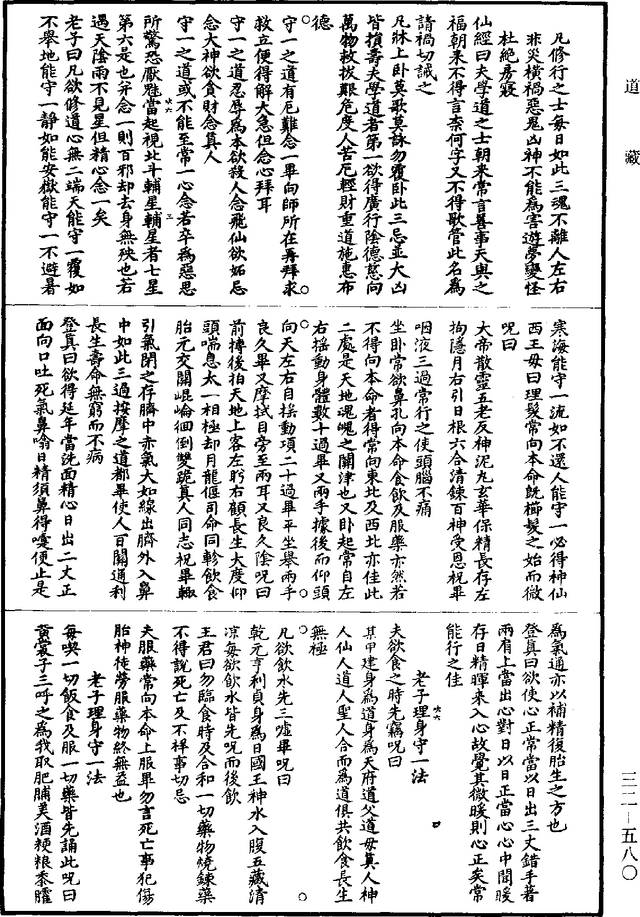 道藏
凡修行之士每日如此三魂不離人左右
非災橫禍惡鬼凶神不能為害遊夢變怪
杜絕房寢
仙經曰夫學道之士朝來常言善事天與之
福朝來不得言奈何字又不得歌管此名為
請禍切誡之
凡牀上臥莫歌莫詠勿覆臥此三忌並大凶
皆損壽夫學道者第一欲得廣行陰德慈向
萬物救拔艱危度人苦厄輕財重道施惠布
德
守一之道有厄難念一畢向師所在再拜求
救立便得解大急但念心拜耳
守一之道忍辱為本欲殺人念飛仙欲妬忌
念大神欲貪財念真人
守一之道或不能至常一心念若卒為惡思
所驚恐厭魅當起視北斗輔星輔星者七星
第六是也弁念一則百邪却去身無殃也若
遇天陰雨不見星但精心念一矣
老子曰凡欲修道心無二端天能守一覆如
不舉地能守一靜如能安嶽能守一不避暑
寒海能守一流如不還人能守一必得神仙
西王母曰理髮常向本命旣櫛髮之始而微
呪曰
大帝散靈五老反神泥丸玄華保精長存左
拘隱月右引日根六合清鍊百神受恩祝畢
咽液三過常行之使頭腦不痛
坐臥常欲鼻孔向本命食飲及服藥亦然若
不得向本命者得常向東北及西北亦佳此
二處是天地魂魄之關津也又臥起常自左
右揺動身體數十過畢又兩手據後而仰頭
向天左右自揺動項二十過畢平坐舉兩手
良久畢又摩拭目旁至兩耳又良久陰呪曰
前摶後拍天地上客左躬右顧長生大度仰
頭喘息太一相極却月龍偃司命同軫飲食
胎元交關崐崘徊倒雙跪真人同志祝畢輒
引氣閉之存臍中赤氣大如線出臍外入鼻
中如此三過按摩之道都畢使人百關通利
長生壽命無窮而不病
登真曰欲得延年當洗面精心日出二丈正
面向口吐死氣鼻噏日精須鼻得嚏便止是
為氣通亦以補精復胎生之方也
登真曰欲使心正常當以日出三丈錯手著
兩肩上當出心對日以日正當心心中間暖
存日精暉來入心故覺其微暖則心正矣常
能行之佳
老子理身守一法
夫欲食之時先竊呪曰
某甲建身為道身為天府道父道母真人神
人仙人道人聖人合而為道俱共飲食長生
無極
凡欲飲水先三噓畢呪曰
乾元亨利貞身為日國王神水入腹五藏清
涼每欲飲水皆先呪而後飲
王君曰勿臨食時及合和一切藥物燒鍊藥
不得說死亡及不祥事切忌
夫服藥常向本命上服畢勿言死亡事犯傷
胎神徒勞服藥物終無益也
老子理身守一法
每喫一切飯食及服一切藥皆先誦此呪曰
黃裳子三呼之為我取肥脯美酒粳粮黍臛
三二－五八〇